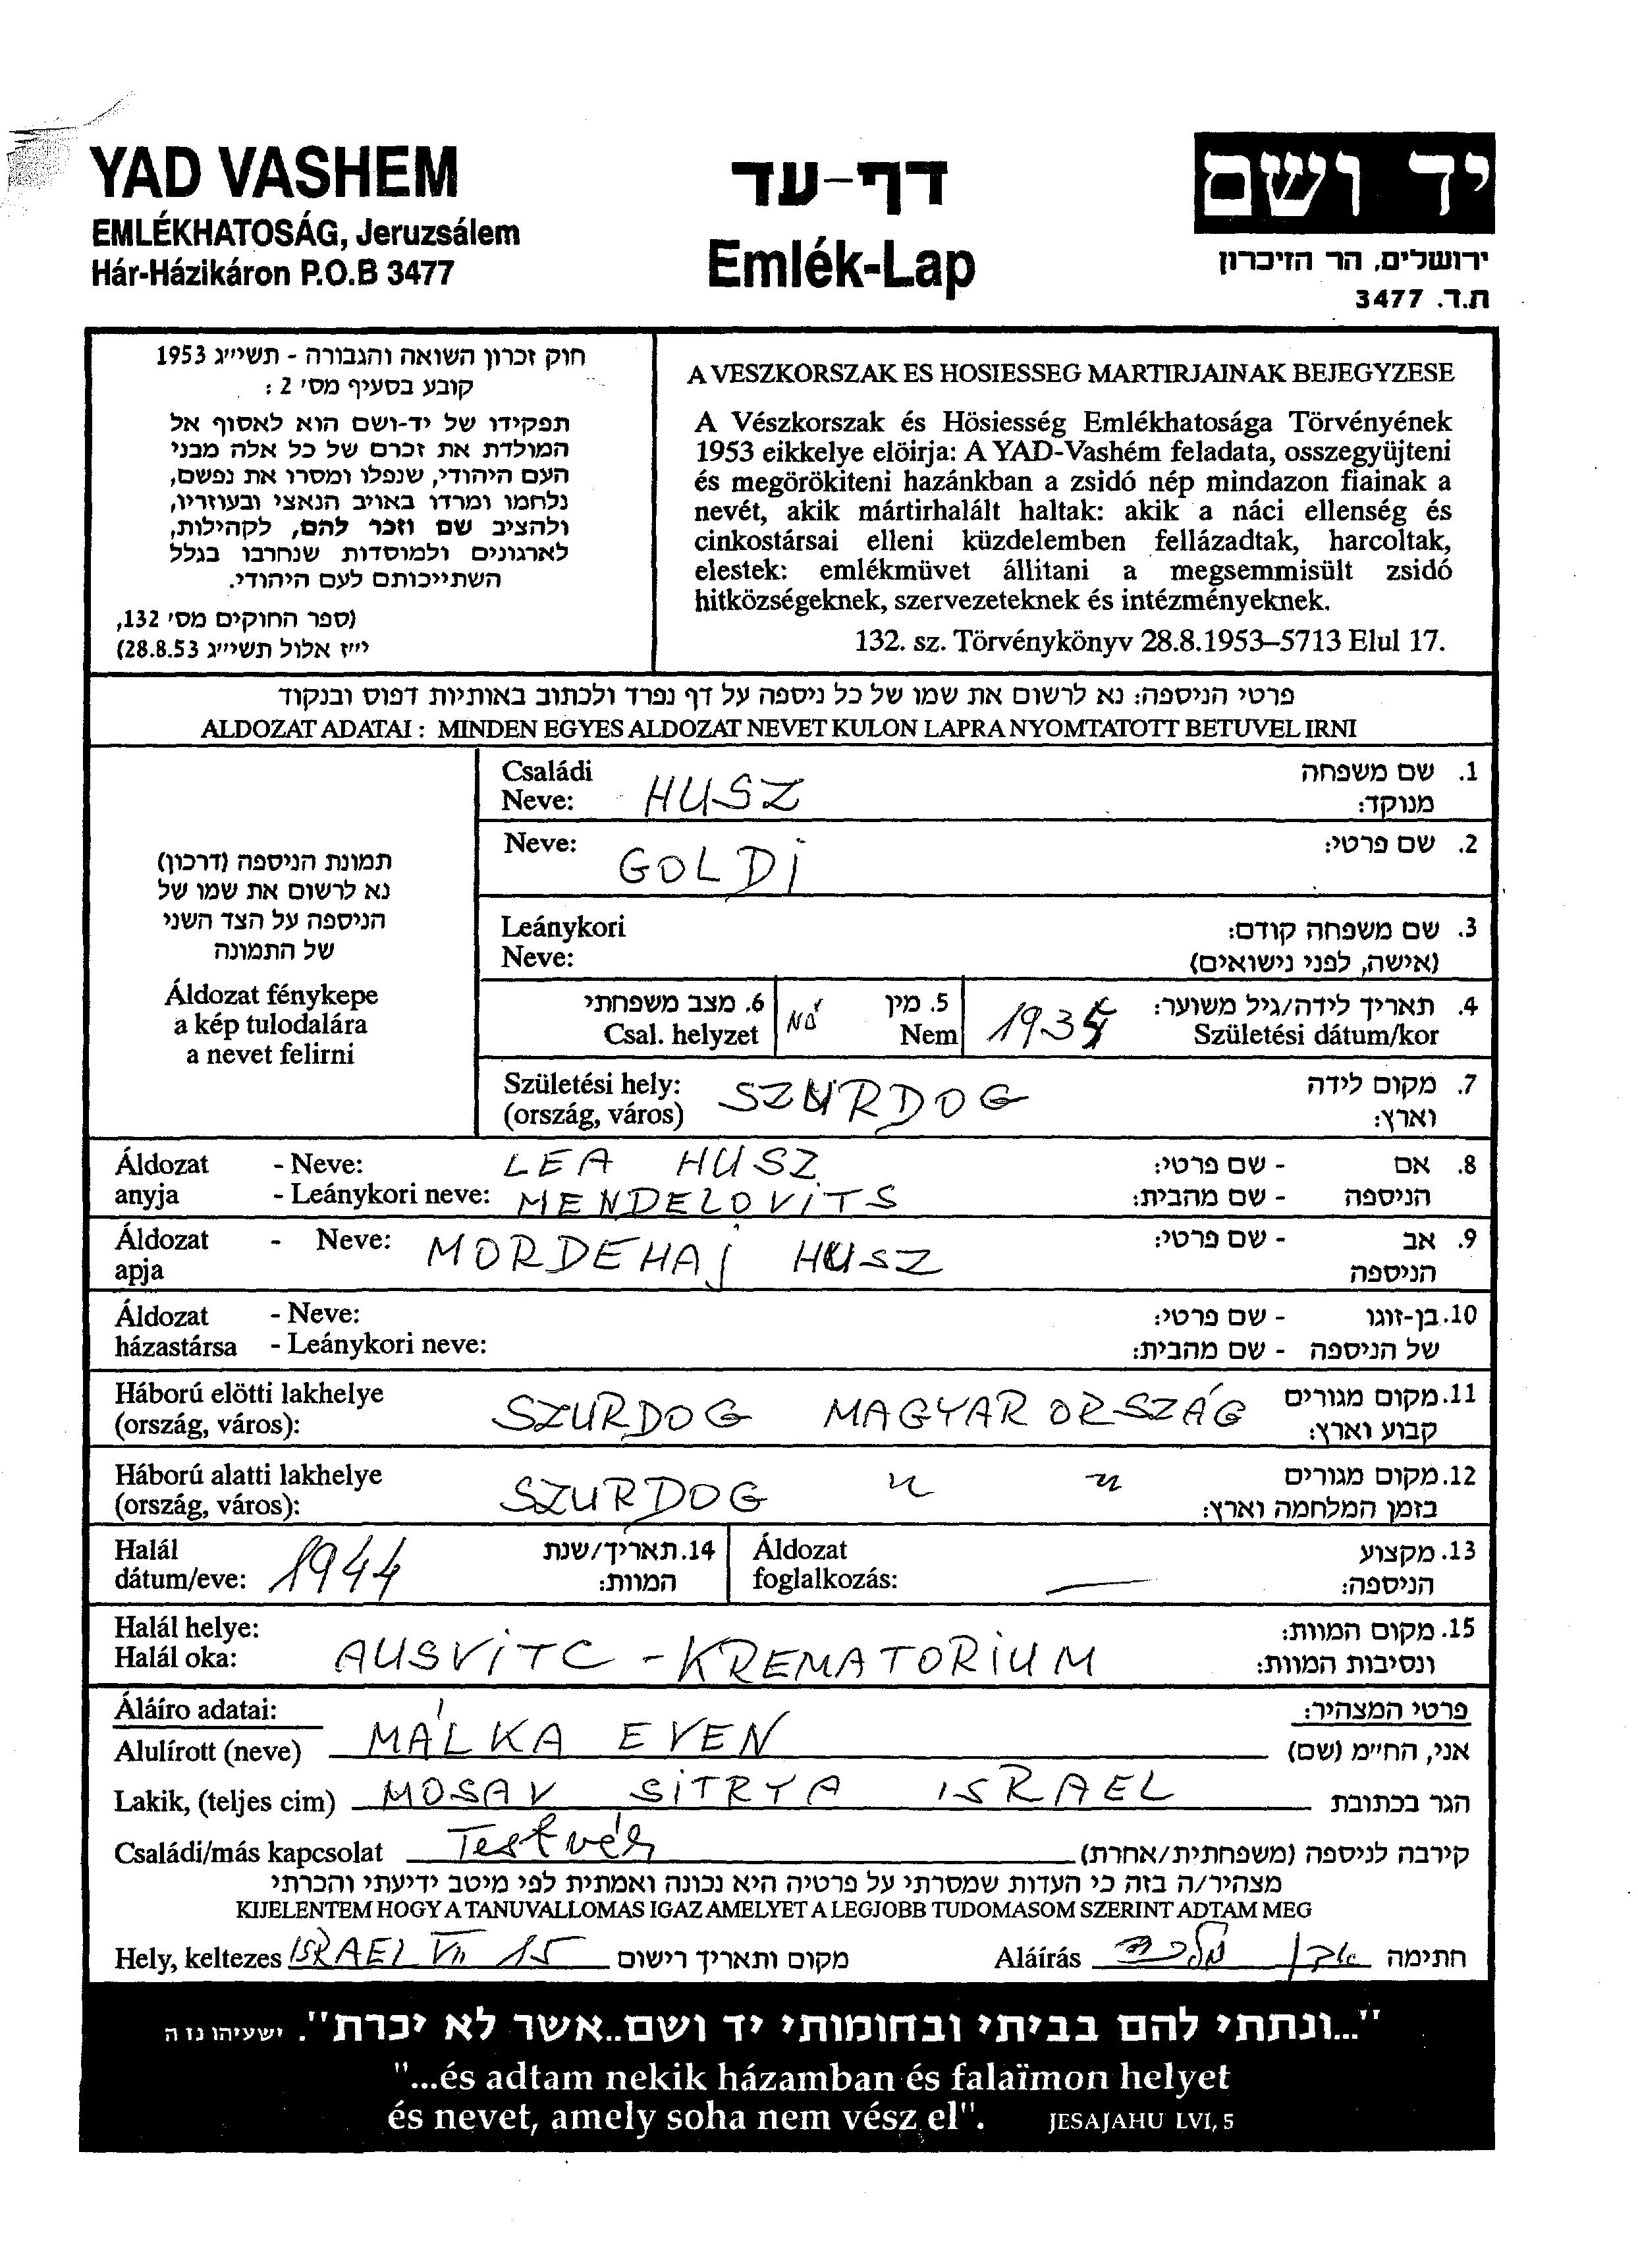 YAD VASHEM
EMLÉKHATOSÁG, Jeruzsálem
Hár-Házikáron P.O.B 3477
דף-עד
Emlék-Lap
יד ושם
ירושלים, הר הזיכרון
ת.ד. 3477
חוק זכרון השואה והגבורה - תשי״ג 1953
קובע בסעיף מס׳ 2 :
תפקידו של יד-ושם הוא לאסוף אל
המולדת את זכרם של כל אלה מבני
העם היהודי, שנפלו ומסרו את נפשם,
נלחמו ומרדו באויב הנאצי ובעוזריו,
ולהציב שם וזכר להם, לקהילות,
לארגונים ולמוסדות שנחרבו בגלל
השתייכותם לעם היהודי.
(ספר החוקים מס׳ 132,
י״ז אלול תשי״ג 28.8.53)
A VESZKORSZAK ES HOSIESSEG MARTIRJAINAK BEJEGYZESE
A Vészkorszak és Hösiesség Emlékhatosága Törvényének
1953 eikkelye elöirja: A YAD-Vashém feladata, osszegyüjteni
és megörökiteni hazánkban a zsidó nép mindazon fiainak a
nevét, akik mártirhalált haltak: akik a náci ellenség és
cinkostársai elleni küzdelemben fellázadtak, harcoltak,
elestek: emlékmüvet állitani a megsemmisült zsidó
hitközségeknek, szervezeteknek és intézményeknek.
132. sz. Törvénykönyv 28.8.1953–5713 Elul 17.
פרטי הניספה: נא לרשום את שמו של כל ניספה על דף נפרד ולכתוב באותיות דפוס ובנקוד
ALDOZAT ADATAI : MINDEN EGYES ALDOZAT NEVET KULON LAPRA NYOMTATOTT BETUVEL IRNI
תמונת הניספה (דרכון)
נא לרשום את שמו של
הניספה על הצד השני
של התמונה
Áldozat fénykepe
a kép tulodalára
a nevet felirni
Családi Neve: HUSZ 1. שם משפחה מנוקד:
Neve: GOLDi 2. שם פרטי:
Leánykori Neve: 3. שם משפחה קודם: (אישה, לפני נישואים)
4. תאריך לידה/גיל משוער: Születési dátum/kor
5. מין Nem Nő
6. מצב משפחתי Csal. helyzet
Születési hely: (ország, város) SZURDOG 7. מקום לידה וארץ:
Áldozat anyja - Neve: LEA HUSZ - שם פרטי: 8. אם הניספה
- Leánykori neve: MENDELOViTS - שם מהבית:
Áldozat apja - Neve: MORDEHAj HUSZ - שם פרטי: 9. אב הניספה
Áldozat házastársa - Neve: - שם פרטי: 10. בן-זוגו של הניספה
- Leánykori neve: - שם מהבית:
Háború elötti lakhelye (ország, város): SZURDOG MAGYARORSZÁG 11. מקום מגורים קבוע וארץ:
Háború alatti lakhelye (ország, város): SZURDOG 12. מקום מגורים בזמן המלחמה וארץ:
Halál dátum/eve: 1944 14. תאריך/שנת המוות:
Áldozat foglalkozás: — 13. מקצוע הניספה:
Halál helye: Halál oka: AUSViTC - KREMATORiUM 15. מקום המוות: ונסיבות המוות:
Áláíro adatai: פרטי המצהיר:
Alulírott (neve) MÁLKA EVEN אני, החי״מ (שם)
Lakik, (teljes cim) MOSAV SiTRYA iSRAEL הגר בכתובת
Családi/más kapcsolat Testvér קירבה לניספה (משפחתית/אחרת)
מצהיר/ה בזה כי העדות שמסרתי על פרטיה היא נכונה ואמתית לפי מיטב ידיעתי והכרתי
KIJELENTEM HOGY A TANUVALLOMAS IGAZ AMELYET A LEGJOBB TUDOMASOM SZERINT ADTAM MEG
Hely, keltezes ISRAEL VII 15 מקום ותאריך רישום Aláírás מלכה אבן חתימה
"...ונתתי להם בביתי ובחומותי יד ושם..אשר לא יכרת". ישעיהו נז ה
"...és adtam nekik házamban és falaïmon helyet
és nevet, amely soha nem vész el". JESAJAHU LVI, 5